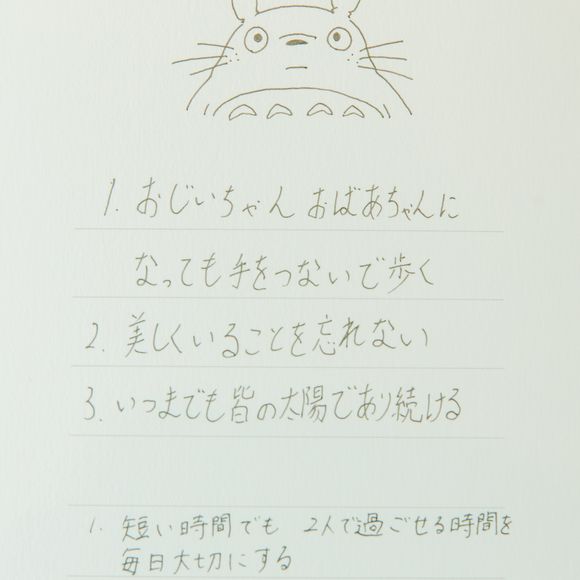 1. おじいちゃん おばあちゃんに
なっても手をつないで歩く
2. 美しくいることを忘れない
3. いつまでも皆の太陽であり続ける
1. 短い時間でも 2人で過ごせる時間を
毎日大切にする